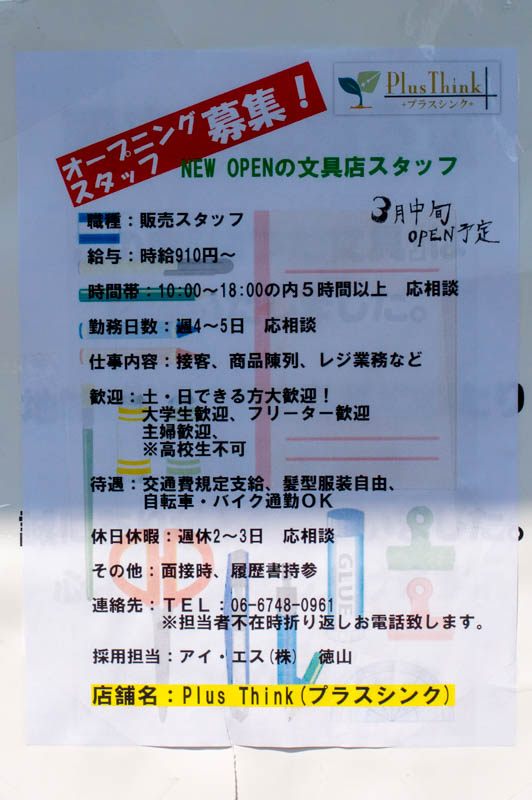 Plus Think
+プラスシンク+
オープニング
スタッフ
募集！
NEW OPENの文具店スタッフ
3月中旬
OPEN予定
職種：販売スタッフ
給与：時給910円～
時間帯：10:00～18:00の内５時間以上　応相談
勤務日数：週4～5日　応相談
仕事内容：接客、商品陳列、レジ業務など
歓迎：土・日できる方大歓迎！
大学生歓迎、フリーター歓迎
主婦歓迎、
※高校生不可
待遇：交通費規定支給、髪型服装自由、
自転車・バイク通勤ＯＫ
休日休暇：週休2～3日　応相談
その他：面接時、履歴書持参
連絡先：ＴＥＬ：06-6748-0961
※担当者不在時折り返しお電話致します。
採用担当：アイ・エス(株)　徳山
店舗名：Plus Think(プラスシンク)
GLUE